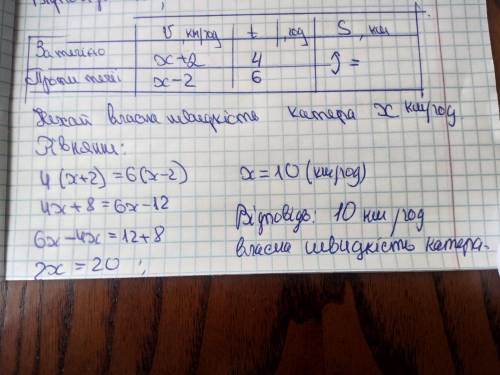 V км/год t, год S, км
За течією x+2 4 } =
Проти течії x-2 6
Нехай власна швидкість катера x км/год
Рівняння:
4(x+2)=6(x-2)
4x+8=6x-12
6x-4x=12+8
2x=20;
x=10 (км/год)
Відповідь: 10 км/год
власна швидкість катера.